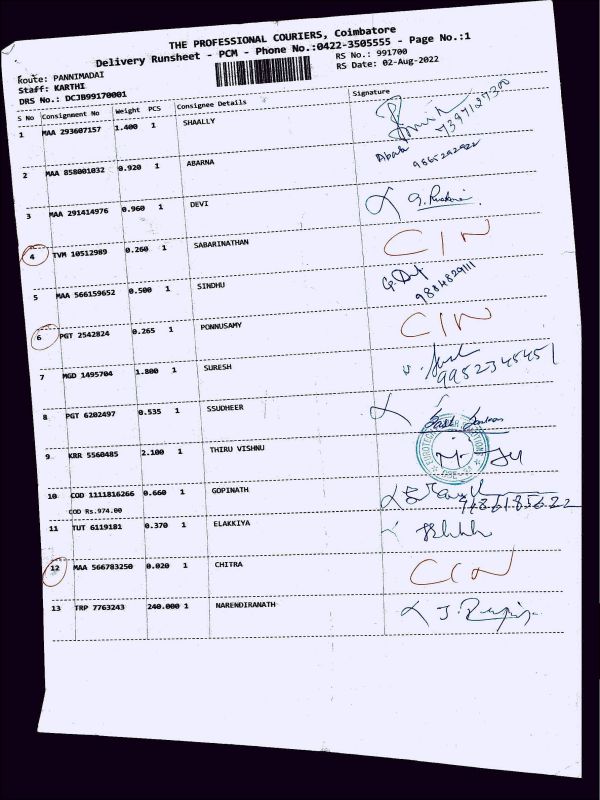 THE PROFESSIONAL COURIERS, Coimbatore
Delivery Runsheet - PCM - Phone No.:0422-3505555 - Page No.:1
Route: PANNIMADAI
RS No.: 991700
Staff: KARTHI
RS Date: 02-Aug-2022
DRS No.: DCJB99170001
S No Consignment No Weight PCS Consignee Details Signature
1 MAA 293607157 1.400 1 SHAALLY
7397127200
2 MAA 858001032 0.920 1 ABARNA
3 MAA 291414976 0.960 1 DEVI
4 TVM 10512989 0.260 1 SABARINATHAN CIN
5 MAA 566159652 0.500 1 SINDHU
9884829111
6 PGT 2542824 0.265 1 PONNUSAMY CIN
7 MGD 1495704 1.800 1 SURESH
9952345451
8 PGT 6202497 0.535 1 SSUDHEER
9 KRR 5560485 2.100 1 THIRU VISHNU
10 COD 1111816266 0.660 1 GOPINATH
COD Rs.974.00
11 TUT 6119181 0.370 1 ELAKKIYA
12 MAA 566783250 0.020 1 CHITRA CIN
13 TRP 7763243 240.000 1 NARENDIRANATH